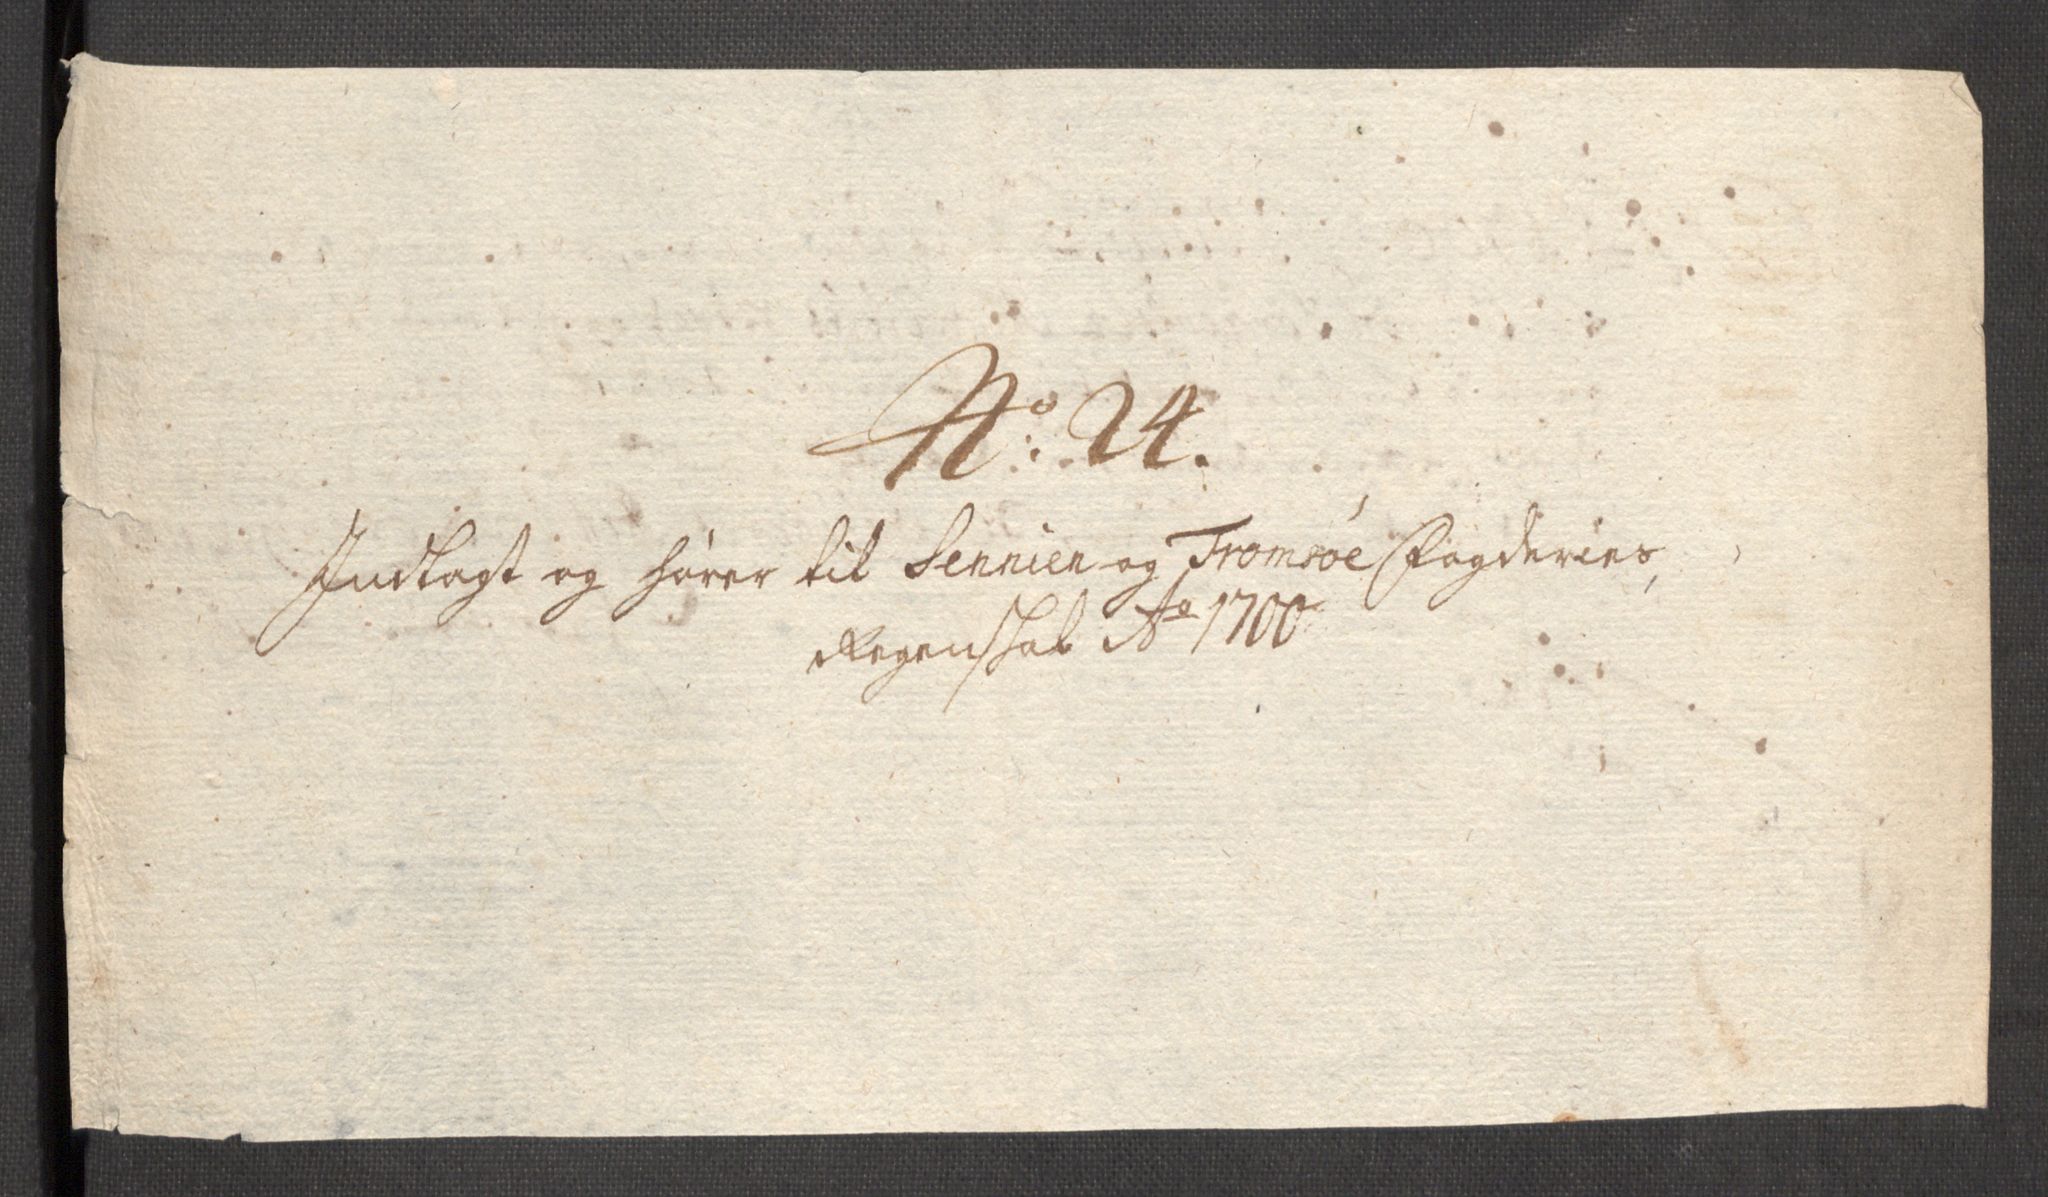 No: 24.
Indlagt og hører til Sennien og Tromsøe Fogderies
Regenskab Ao 1700